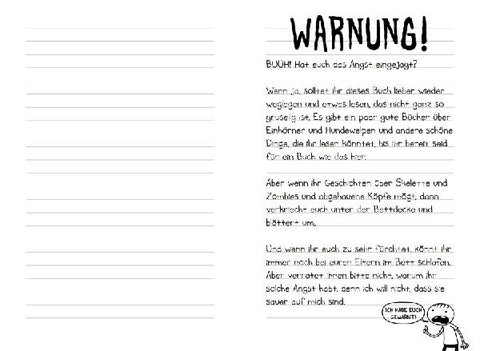 WARNUNG!
BUUH! Hat euch das Angst eingejagt?
Wenn ja, solltet ihr dieses Buch lieber wieder
weglegen und etwas lesen, das nicht ganz so
gruselig ist. Es gibt ein paar gute Bücher über
Einhörner und Hundewelpen und andere schöne
Dinge, die ihr lesen könntet, bis ihr bereit seid
für ein Buch wie das hier.
Aber wenn ihr Geschichten über Skelette und
Zombies und abgehauene Köpfe mögt, dann
verkriecht euch unter der Bettdecke und
blättert um.
Und wenn ihr euch zu sehr fürchtet, könnt ihr
immer noch bei euren Eltern im Bett schlafen.
Aber verratet ihnen bitte nicht, warum ihr
solche Angst habt, denn ich will nicht, dass sie
sauer auf mich sind.
ICH HABE EUCH
GEWARNT!